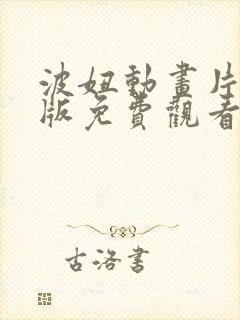 波妞動畫片
版免費觀看
古洛書